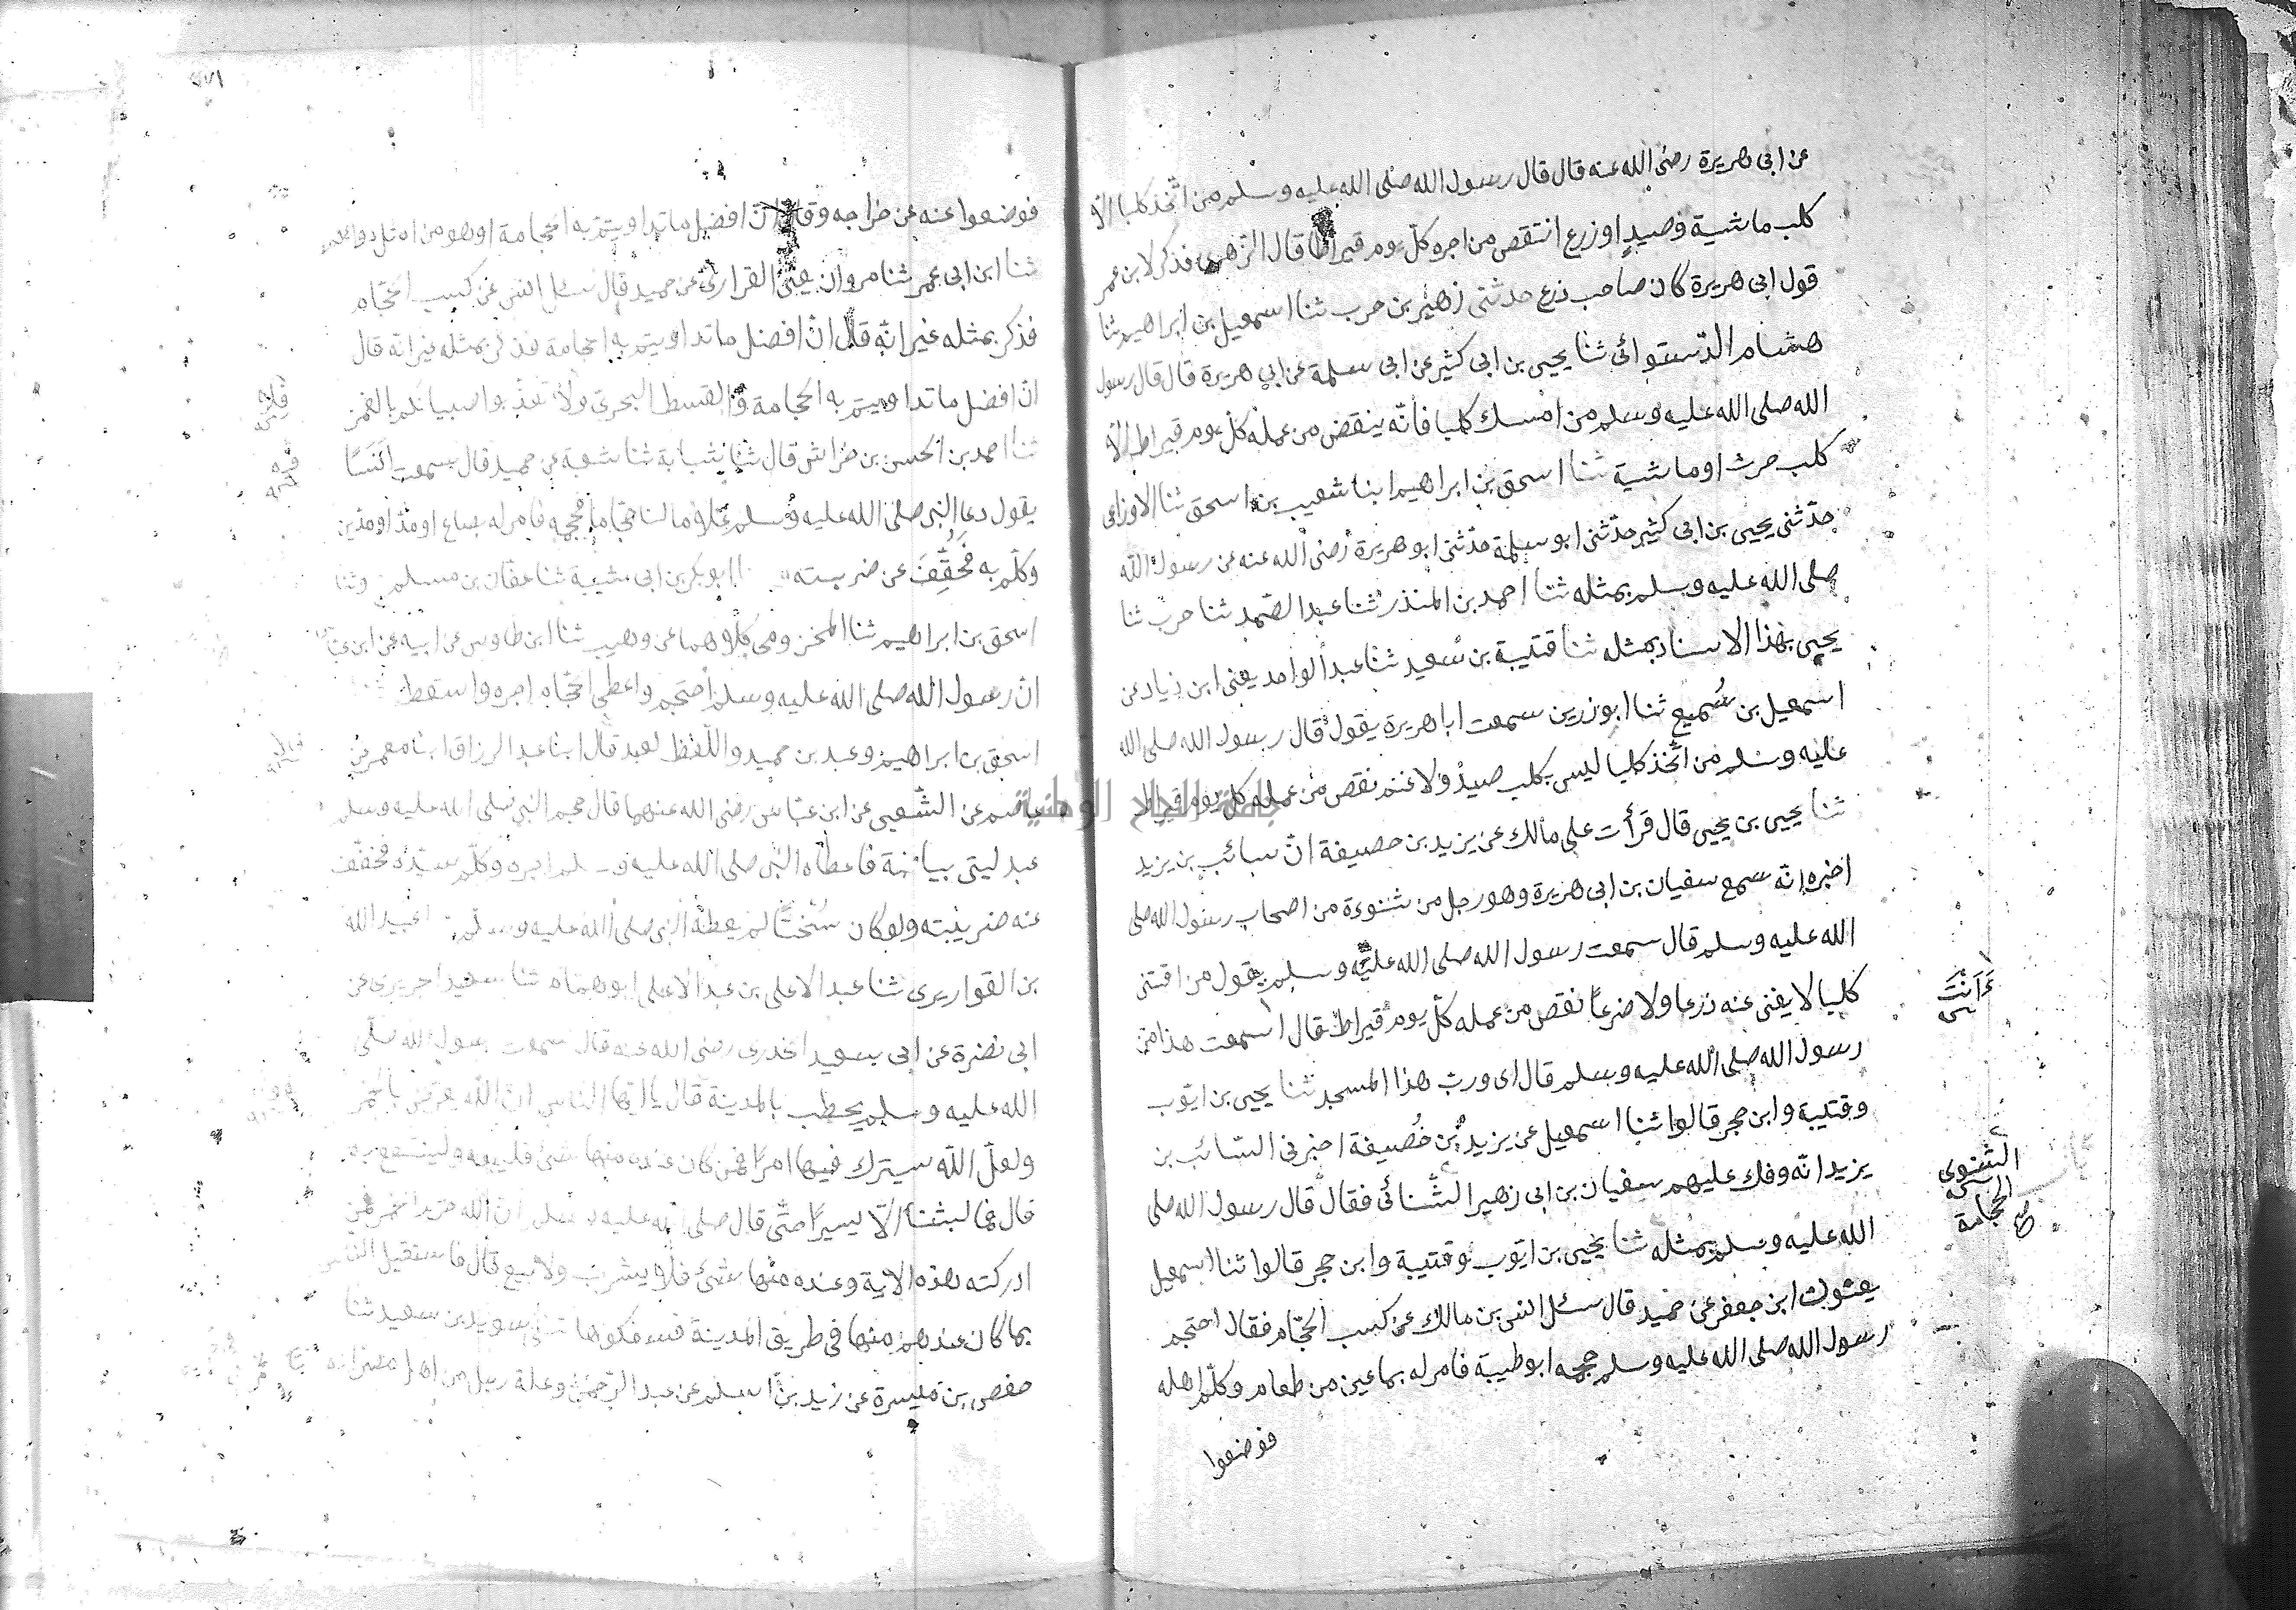 عن ابى هريرة رضى الله عنه قال قال رسول الله صلى الله عليه وسلم من اتّخذ كلبا الّا
كلب ماشية وصيدٍ او زرع انتقص من اجره كلّ يوم قيراط قال الزّهرى فذكر لابن عمر
قول ابى هريرة كان صاحب زرع حدثنى زهير بن حرب ثنا اسمعيل بن ابراهيم ثنا
هشام الدّستوائى ثنا يحيى بن ابى كثير عن ابى سلمة عن ابى هريرة قال قال رسول
الله صلى الله عليه وسلم من امسك كلبا فانّه ينقص من عمله كلّ يوم قيراط الّا
كلب حرث او ماشية ثنا اسحق بن ابراهيم ابنا شعيب بن اسحق ثنا الاوزاعى
حدّثنى يحيى بن ابى كثير حدّثنى ابو سلمة حدّثنى ابو هريرة رضى الله عنه عن رسول الله
صلى الله عليه وسلم بمثله ثنا احمد بن المنذر ثنا عبد الصّمد ثنا حرب ثنا
يحيى بهذا الاسناد بمثله ثنا قتيبة بن سعيد ثنا عبد الواحد يعنى ابن زياد عن
اسمعيل بن سُميع ثنا ابو زرين سمعت ابا هريرة يقول قال رسول الله صلى الله
عليه وسلم من اتّخذ كلبا ليس بكلب صيد ولا غنم نقص من عمله كل يوم قيراط
ثنا يحيى بن يحيى قال قرأت على مالك عن يزيد بن حصيفة انّ سائب بن يزيد
اخبره انّه سمع سفيان بن ابى هريرة وهو رجل من شنوءة من اصحاب رسول الله صلى
الله عليه وسلم قال سمعت رسول الله صلى الله عليه وسلم يقول من اقتنى
كلبا لا يغنى عنه زرعا ولا ضرعًا نقص من عمله كلّ يوم قيراط قال اسمعت هذا من
رسول الله صلى الله عليه وسلم قال اى وربّ هذا المسجد ثنا يحيى بن ايّوب
وقتيبة وابن حجر قالوا ثنا اسمعيل عن يزيد بن خُصيفة اخبرنى السّائب بن
يزيد انّه وفك عليهم سفيان بن ابى زهير الشّنائى فقال قال رسول الله صلى
الله عليه وسلم بمثله ثنا يحيى بن ايّوب وقتيبة وابن حجر قالوا ثنا اسمعيل
يعنون ابن جعفر عن حميد قال سئل انس بن مالك عن كسب الحجّام فقال احتجم
رسول الله صلى الله عليه وسلم حجمه ابو طيبة فامر له بصاعين من طعام وكلّم اهله
فوضعوا
ءَانْتَ
الشنوى
الحجامة
فوضعوا عنه عن خراجه وقال انّ افضل ما تداويتم به الحجامة او هو من امثل دوائكم
ثنا ابن ابى عمر ثنا مروان يعنى الفزارىّ عن حميد قال سئل انس عن كسب الحجّام
فذكر بمثله غير انّه قال انّ افضل ما تداويتم به الحجامة فذكر بمثله غير انّه قال
انّ افضل ما تداويتم به الحجامة والقسط البحرىّ ولا تعذّبوا صبيانكم بالغمز
ثنا احمد بن الحسن بن خراش قال ثنا شبابة ثنا شعبة عن حميد قال سمعت انسًا
يقول دعا النبى صلى الله عليه وسلم غلاما لنا حجّاما فحجمه فامر له بصاع او مدّ او مدّين
وكلّم به فَخُفِّفَ عن ضريبته ابو بكر بن ابى شيبة ثنا عفّان بن مسلم وثنا
اسحق بن ابراهيم ثنا المخزومى كلاهما عن وهيب ثنا ابن طاوس عن ابيه عن ابن عبّاس
ان رسول الله صلى الله عليه وسلم احتجم واعطى الحجّام اجره واسقط
اسحق بن ابراهيم وعبد بن حميد واللّفظ لعبد قال ابنا عبد الرزاق ابنا معمر عن
عاصم عن الشّعبى عن ابن عبّاس رضى الله عنهما قال حجم النبى صلى الله عليه وسلم
عبد لبنى بياضة فاعطاه النبى صلى الله عليه وسلم اجره وكلّم سيّده فخفّف
عنه ضريبته ولو كان سُحْتًا لم يعطه النبى صلى الله عليه وسلم عبيد الله
بن القواريرى ثنا عبد الاعلى بن عبد الاعلى ابو همام ثنا سعيد الجريرى عن
ابى نضرة عن ابى سعيد الخدرى رضى الله عنه قال سمعت رسول الله صلّى
الله عليه وسلم يخطب بالمدينة قال يا ايّها النّاس انّ الله يعرّض بالخمر
ولعلّ الله سيترك فيها امرًا فمن كان عنده منها شئ فليبعه ولينتفع به
قال فما لبثنا الّا يسيرًا حتّى قال صلى الله عليه وسلم ان الله حرّم الخمر فمن
ادركته هذه الاية وعنده منها شئ فلا يشرب ولا يبع قال فاستقبل الناس
بما كان عندهم منها فى طريق المدينة فسفكوها سويد بن سعيد ثنا
حفص بن ميسرة عن زيد بن اسلم عن عبد الرّحمن وعلة رجل من اهل مصر انه
جامعة النجاح الوطنية